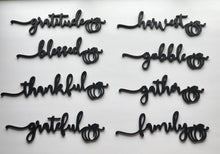 gratitude
harvest
blessed
gobble
thankful
gather
grateful
family